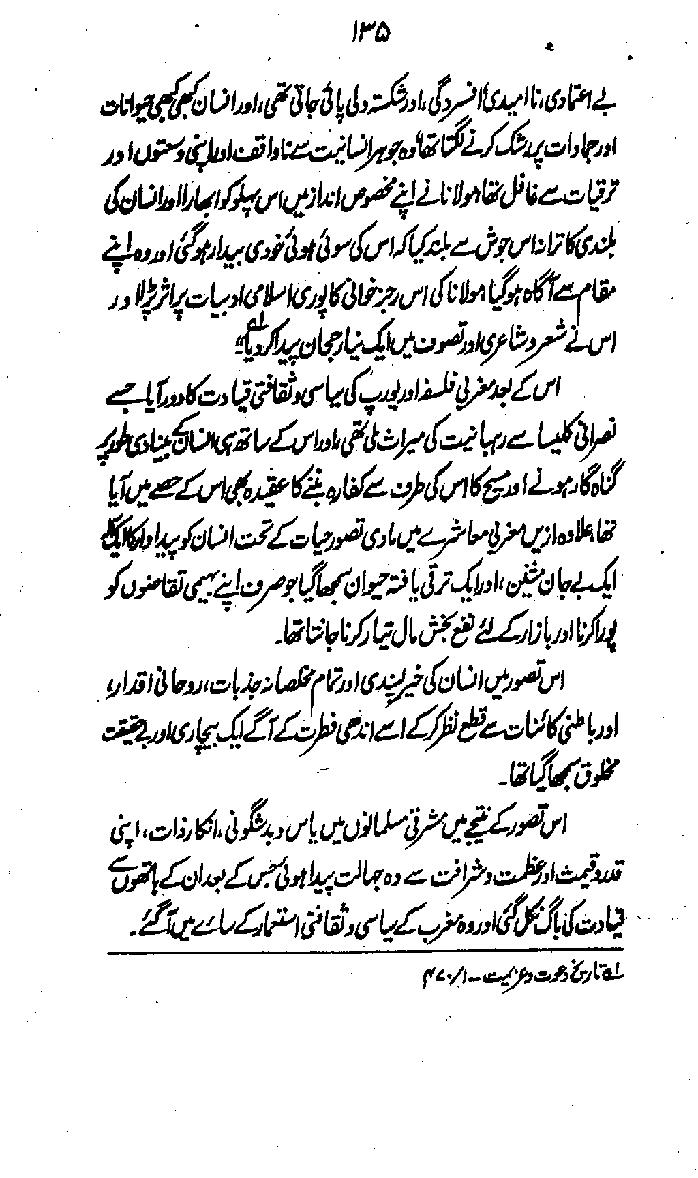 ۱۳۵
بے اعتمادی، نا امیدی، افسردگی، اور شکستہ دلی پائی جاتی تھی، اور انسان کبھی کبھی حیوانات
اور جمادات پر رشک کرنے لگتا تھا، وہ جوہر انسانیت سے ناواقف اور اپنی وسعتوں اور
ترقیات سے غافل تھا، مولانا نے اپنے مخصوص انداز میں اس پہلو کو ابھارا اور انسان کی
بلندی کا ترانہ اس جوش سے بلند کیا کہ اس کی سوئی ہوئی خودی بیدار ہو گئی اور وہ اپنے
مقام سے آگاہ ہو گیا مولانا کی اس رجز خوانی کا پوری اسلامی ادبیات پر اثر پڑا اور
اس نے شعر و شاعری اور تصوف میں ایک نیا رجحان پیدا کر دیا"۔
اس کے بعد مغربی فلسفہ اور یورپ کی سیاسی و ثقافتی قیادت کا دور آیا جسے
نصرانی کلیسا سے رہبانیت کی میراث ملی تھی، اور اس کے ساتھ ہی انسان کے بنیادی طور پر
گناہ گار ہونے اور مسیح کا اس کی طرف سے کفارہ بننے کا عقیدہ بھی اس کے حصے میں آیا
تھا، علاوہ ازیں مغربی معاشرے میں مادی تصور حیات کے تحت انسان کو پیداوار کا ایک
ایک بے جان مشین، اور ایک ترقی یافتہ حیوان سمجھا گیا جو صرف اپنے بہیمی تقاضوں کو
پورا کرنا اور بازار کے لئے نفع بخش مال تیار کرنا جانتا تھا۔
اس تصور میں انسان کی خیر پسندی اور تمام مخلصانہ جذبات، روحانی اقدار،
اور باطنی کائنات سے قطع نظر کر کے اسے اندھی فطرت کے آگے ایک بیچاری اور بے حقیقت
مخلوق سمجھا گیا تھا۔
اس تصور کے نتیجے میں مشرقی مسلمانوں میں یاس و بدشگونی، انکار ذات، اپنی
قدر و قیمت اور عظمت و شرافت سے وہ جہالت پیدا ہوئی جس کے بعد ان کے ہاتھوں سے
قیادت کی باگ نکل گئی اور وہ مغرب کے سیاسی و ثقافتی استعمار کے سائے میں آ گئے۔
لہ تاریخ دعوت و عزیمت - ۱/۴۷۰